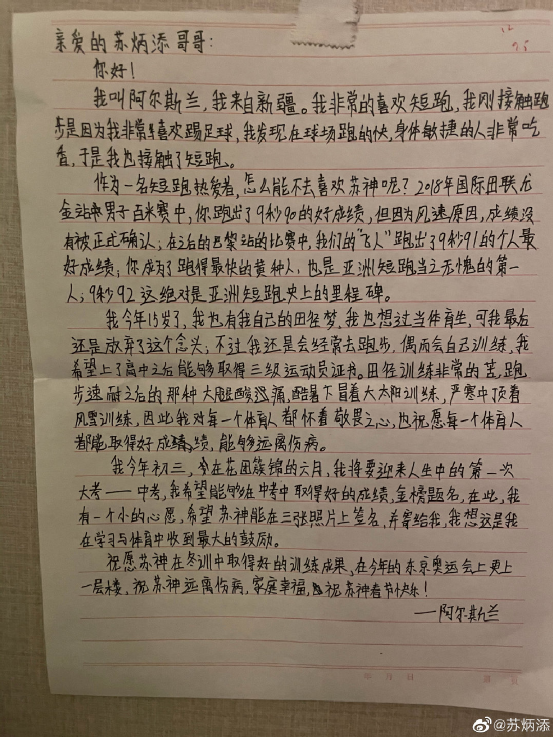 12
25
亲爱的苏炳添哥哥：
你好！
我叫阿尔斯兰，我来自新疆。我非常的喜欢短跑，我刚接触跑
步是因为我非常喜欢踢足球，我发现在球场跑的快，身体敏捷的人非常吃
香，于是我也接触了短跑。
作为一名短跑热爱者，怎么能不去喜欢苏神呢？2018年国际田联尤
金站男子百米赛中，你跑出了9秒90的好成绩，但因为风速原因，成绩没
有被正式确认；在之后的巴黎站的比赛中，我们的“飞人”跑出了9秒91的个人最
好成绩；你成为了跑得最快的黄种人，也是亚洲短跑当之无愧的第一
人；9秒92这绝对是亚洲短跑史上的里程碑。
我今年15岁了，我也有我自己的田径梦，我也想过当体育生，可我最后
还是放弃了这个念头；不过我还是会经常去跑步，偶而会自己训练，我
希望上了高中之后能够取得三级运动员证书。田径训练非常的苦，跑
步速耐之后的那种大腿酸涩痛，酷暑下冒着大太阳训练，严寒中顶着
风雪训练，因此我对每一个体育人都怀着敬畏之心，也祝愿每一个体育人
都能取得好成绩，能够远离伤病。
我今年初三，在花团簇锦的六月，我将要迎来人生中的第一次
大考——中考，我希望能够在中考中取得好的成绩，金榜题名，在此，我
有一个小的心愿，希望苏神能在三张照片上签名，并寄给我，我想这是我
在学习与体育中收到最大的鼓励。
祝愿苏神在冬训中取得好的训练成果，在今年的东京奥运会上更上
一层楼，祝苏神远离伤病，家庭幸福，祝苏神春节快乐！
——阿尔斯兰
年 月 日
@苏炳添